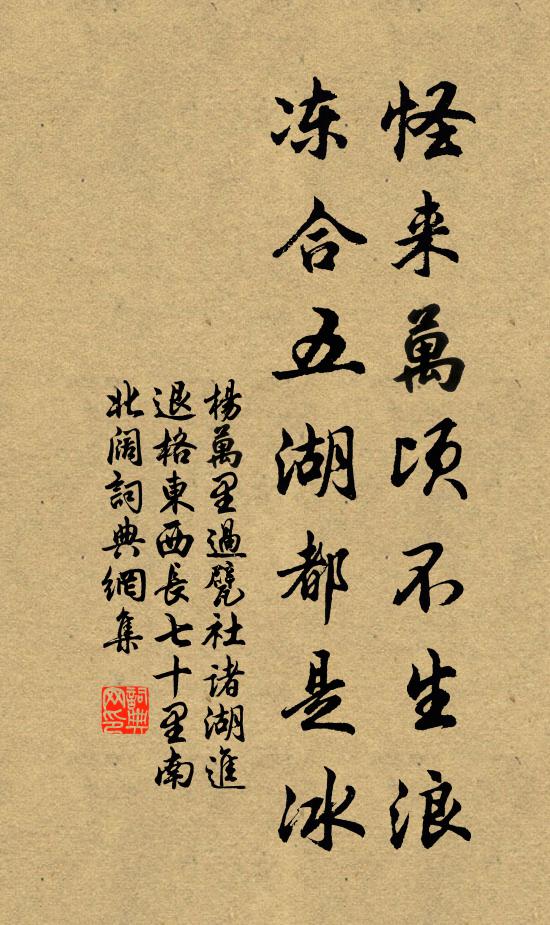 怪来萬頃不生浪
冻合五湖都是冰
楊萬里過甓社诸湖進
退格東西長七十里南
北阔詞典網集
詞典網印